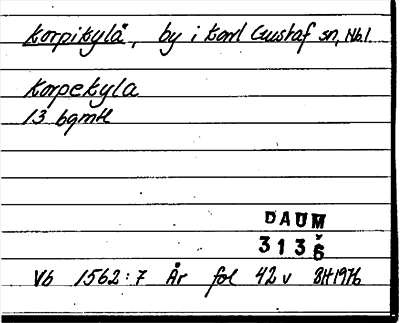 Korpikylä, by i Karl Gustaf sn, Nb.l
Korpekyla
13 bgmtl
DAUM
3136
Vb 1562:7 År fol 42v BH1976